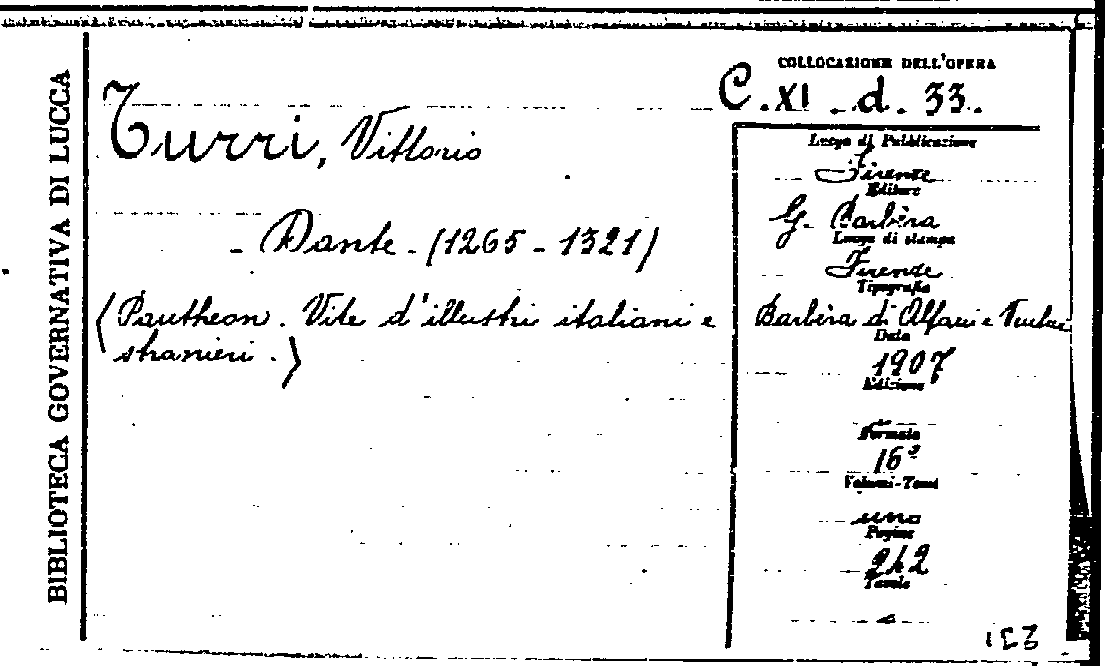 BIBLIOTECA GOVERNATIVA DI LUCCA
COLLOCAZIONE DELL'OPERA
C. XI. d. 33.
Turri, Vittorio
- Dante - (1265 - 1321)
(Pantheon. Vite d'illustri italiani e
stranieri.)
Luogo di Pubblicazione
Firenze
Editore
G. Barbèra
Luogo di stampa
Firenze
Tipografia
Barbèra di Alfani e
Data
1907
Edizione
-
Formato
16º
Volumi-Tomi
uno
Pagine
242
Tavole
-